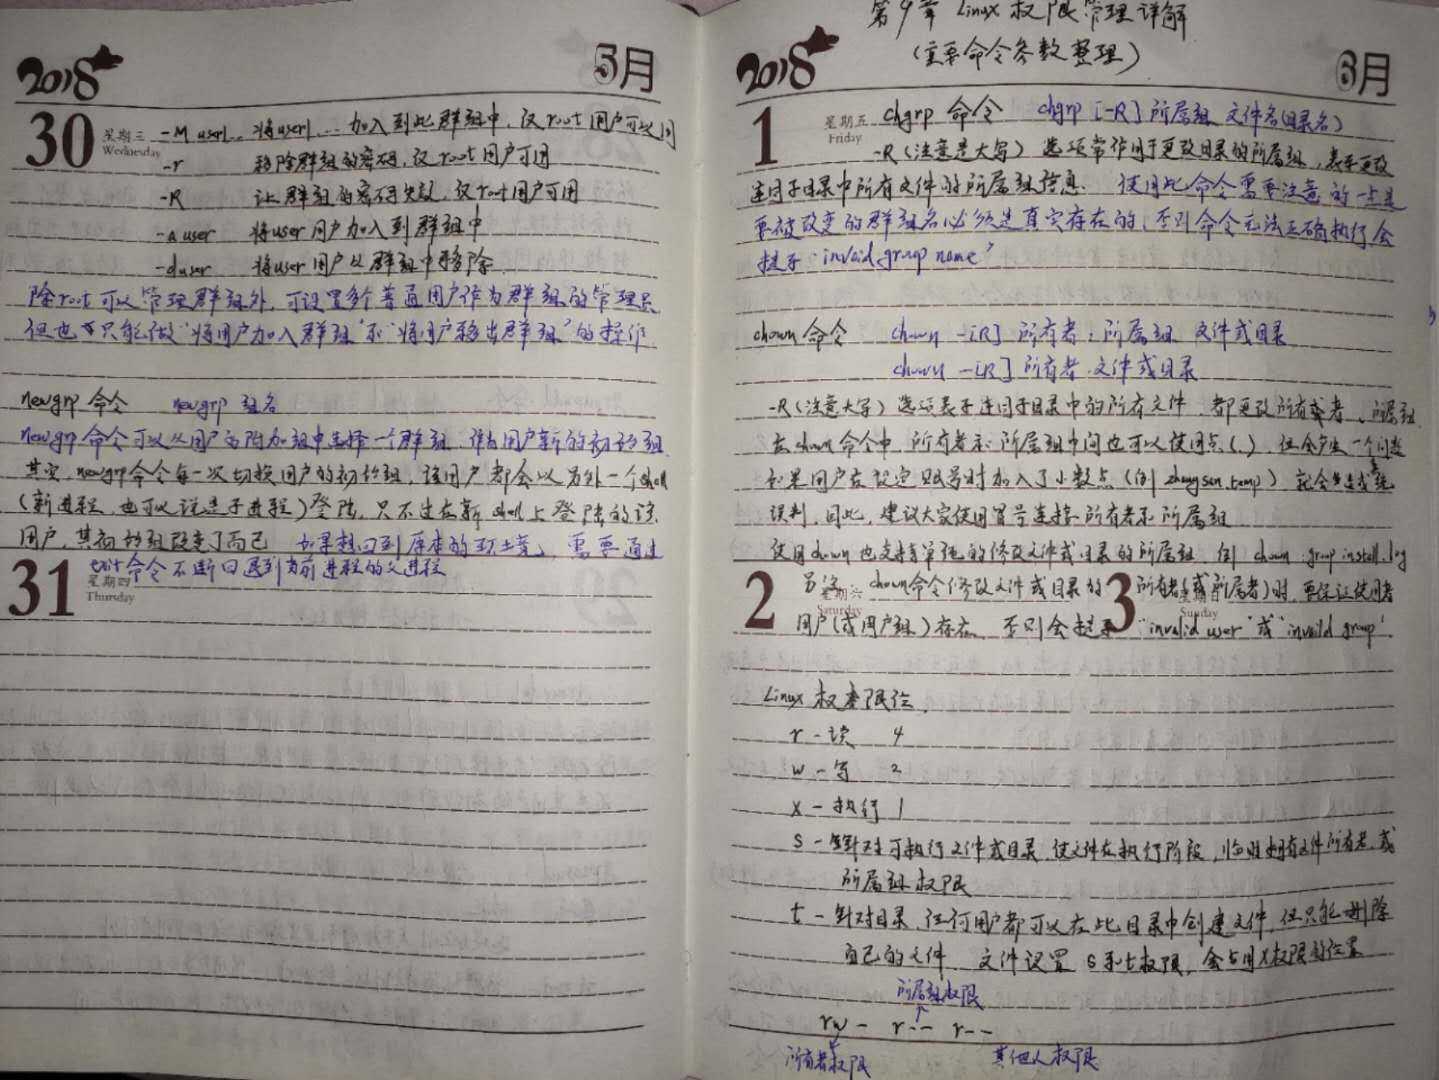 2018 5月
30 星期三 Wednesday
-M user1... 将user1... 加入到此群组中,仅root用户可以用
-r 移除群组的密码,仅root用户可用
-R 让群组的密码失效,仅root用户可用
-a user 将user用户加入到群组中
-d user 将user用户从群组中移除
除root可以管理群组外,可设置多个普通用户作为群组的管理员
但也只能做“将用户加入群组”和“将用户移出群组”的操作
newgrp 命令 newgrp 组名
newgrp命令可以从用户的附加组中选择一个群组,作为用户新的初始组
其实,newgrp命令每一次切换用户的初始组,该用户都会以另外一个shell
(新进程,也可以说是子进程)登陆,只不过在新shell上登陆的该
用户,其初始组改变了而已 如果想回到原本的环境,需要通过
31 星期四 Thursday
exit命令不断回退到当前进程的父进程
第9章 Linux 权限管理详解
(重要命令参数整理)
2018 6月
1 星期五 Friday
chgrp 命令 chgrp [-R] 所属组 文件名(目录名)
-R(注意是大写) 选项常作用于更改目录的所属组,表示更改
连同子目录中所有文件的所属组信息. 使用此命令需要注意的一点是
要被改变的群组名必须是真实存在的,否则命令无法正确执行会
提示‘invaid group name’
chown 命令 chown -[R] 所有者:所属组 文件或目录
chown -[R] 所有者 文件或目录
-R(注意大写) 选项表示连同子目录中的所有文件,都更改所有者,所属组
在chown命令中,所有者和所属组中间也可以使用点(.),但会产生一个问题
如果用户在设定账号时加入了小数点(例 zhangsan.temp) 就会造成系统
误判,因此,建议大家使用冒号连接所有者和所属组
使用chown也支持单纯的修改文件或目录的所属组,例 chown :group install.log
2 星期六 Saturday 3 星期日 Sunday
另外 chown命令修改文件或目录的所有者(或所属者)时,要保证使用者
用户(或用户组)存在,否则会提示“invalid user”或“invaild group”.
Linux 权限位
r - 读 4
w - 写 2
x - 执行 1
s - 针对可执行文件或目录,使文件在执行阶段,临时拥有文件所有者,或
所属组权限
t - 针对目录,任何用户都可以在此目录中创建文件,但只能删除
自己的文件 文件设置 s和t权限,会占用x权限的位置
所属组权限
rw- r-- r--
所有者权限 其他人权限